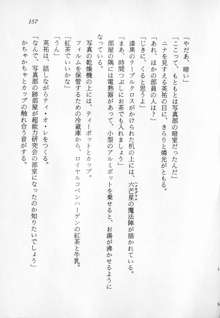 157
「やだあ、暗い」
「ここって、もともとは写真部の暗室だったんだ」
ニナを見る英祐の目に、きらりと燐光が走った。
「あと、ほかの部員の人は?」
「まあ、時間つぶしにお茶でも入れてようよ」
漆黒のテーブルクロスがかけられた机の上には、六芒星の魔法陣が描かれている。
部屋の隅には電熱器があって、小型のアルミポットで、お湯が沸かされている。
写真の乾燥機の上に、ティーポットとカップ。
フィルムを保管するための冷蔵庫から、ロイヤルコペンハーゲンの紅茶と牛乳。
「紅茶でいいかな」
「なんでもいい」
英祐が見ながらティ・オ・レをいれる。
「なんで、写真部の跡部屋が超能力研究会の部室になったのか知りたいでしょう」
かちゃかちゃとカップの触れ合う音がする。